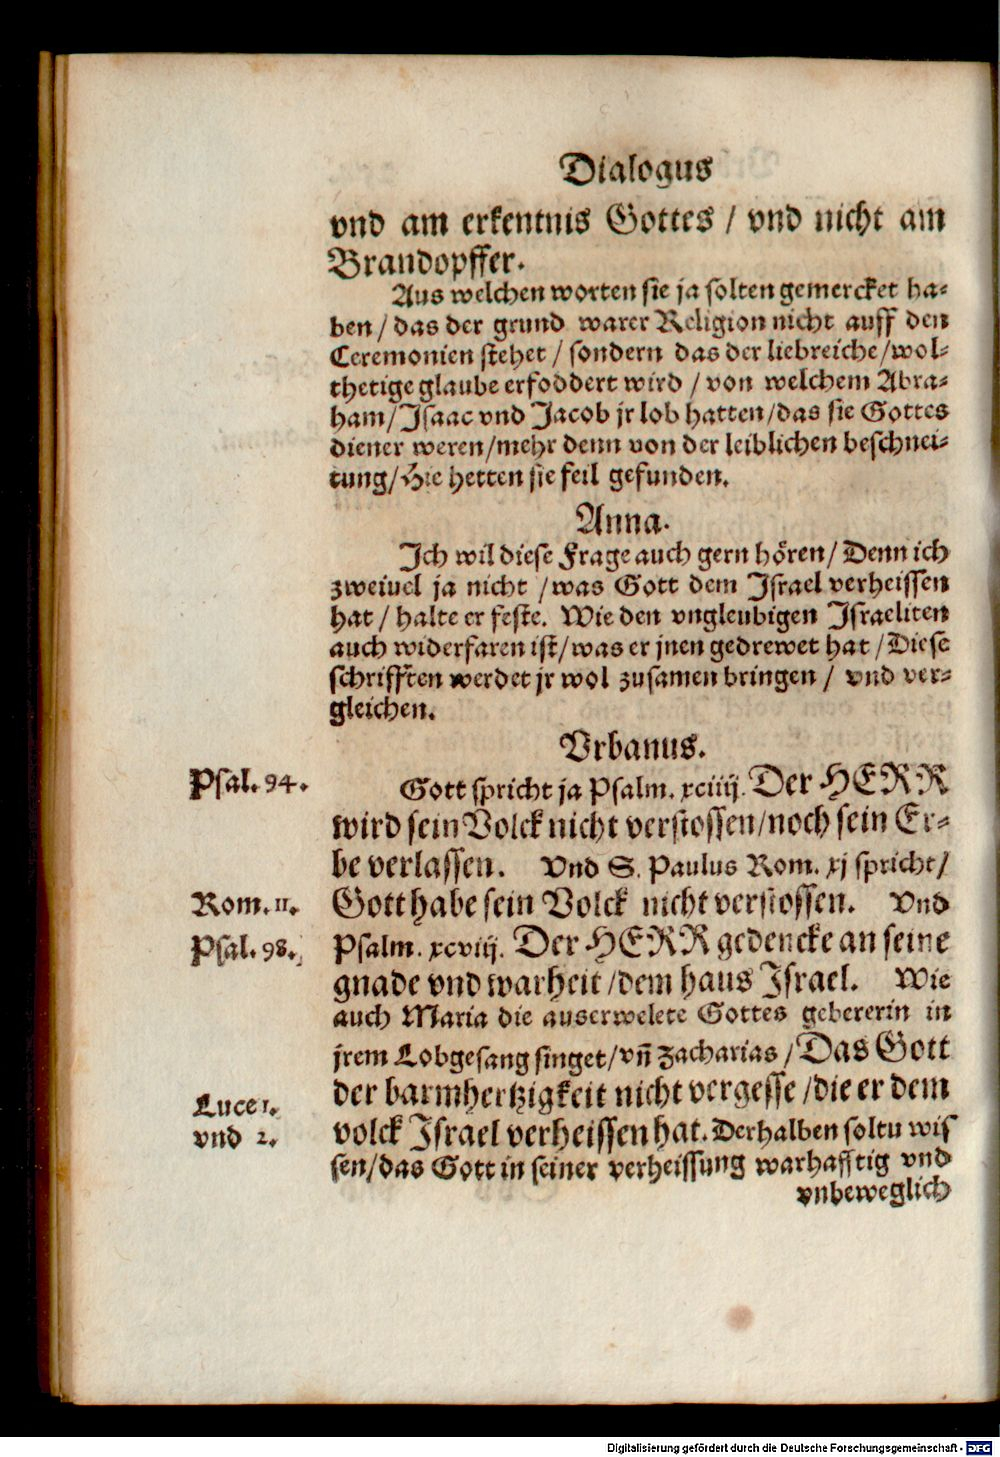 Dialogus
vnd am erkentnis Gottes / vnd nicht am
Brandopffer.
Aus welchen worten sie ja solten gemercket ha-
ben / das der grund warer Religion nicht auff den
Ceremonien stehet / sondern das der liebreiche / wol-
thetige glaube erfoddert wird / von welchem Abra-
ham / Isaac vnd Jacob jr lob hatten / das sie Gottes
diener weren / mehr denn von der leiblichen beschnei-
tung / Hie hetten sie feil gefunden.
Anna.
Ich wil diese Frage auch gern hören / Denn ich
zweiuel ja nicht / was Gott dem Israel verheissen
hat / halte er feste. Wie den vngleubigen Israeliten
auch widerfaren ist / was er jnen gedrewet hat / Diese
schrifften werdet jr wol zusamen bringen / vnd ver-
gleichen.
Vrbanus.
Psal. 94. Gott spricht ja Psalm. xciiij. Der HERR
wird sein Volck nicht verstossen / noch sein Er-
be verlassen. Vnd S. Paulus Rom. xj spricht /
Rom. 11. Gott habe sein Volck nicht verstossen. Vnd
Psal. 98. Psalm. xcviij. Der HERR gedencke an seine
gnade vnd warheit / dem haus Israel. Wie
auch Maria die auserwelete Gottes gebererin in
jrem Lobgesang singet / vn̄ Zacharias / Das Gott
der barmhertzigkeit nicht vergesse / die er dem
Luce 1.
vnd 2. volck Israel verheissen hat. Derhalben soltu wis
sen / das Gott in seiner verheissung warhafftig vnd
vnbeweglich
Digitalisierung gefördert durch die Deutsche Forschungsgemeinschaft - DFG